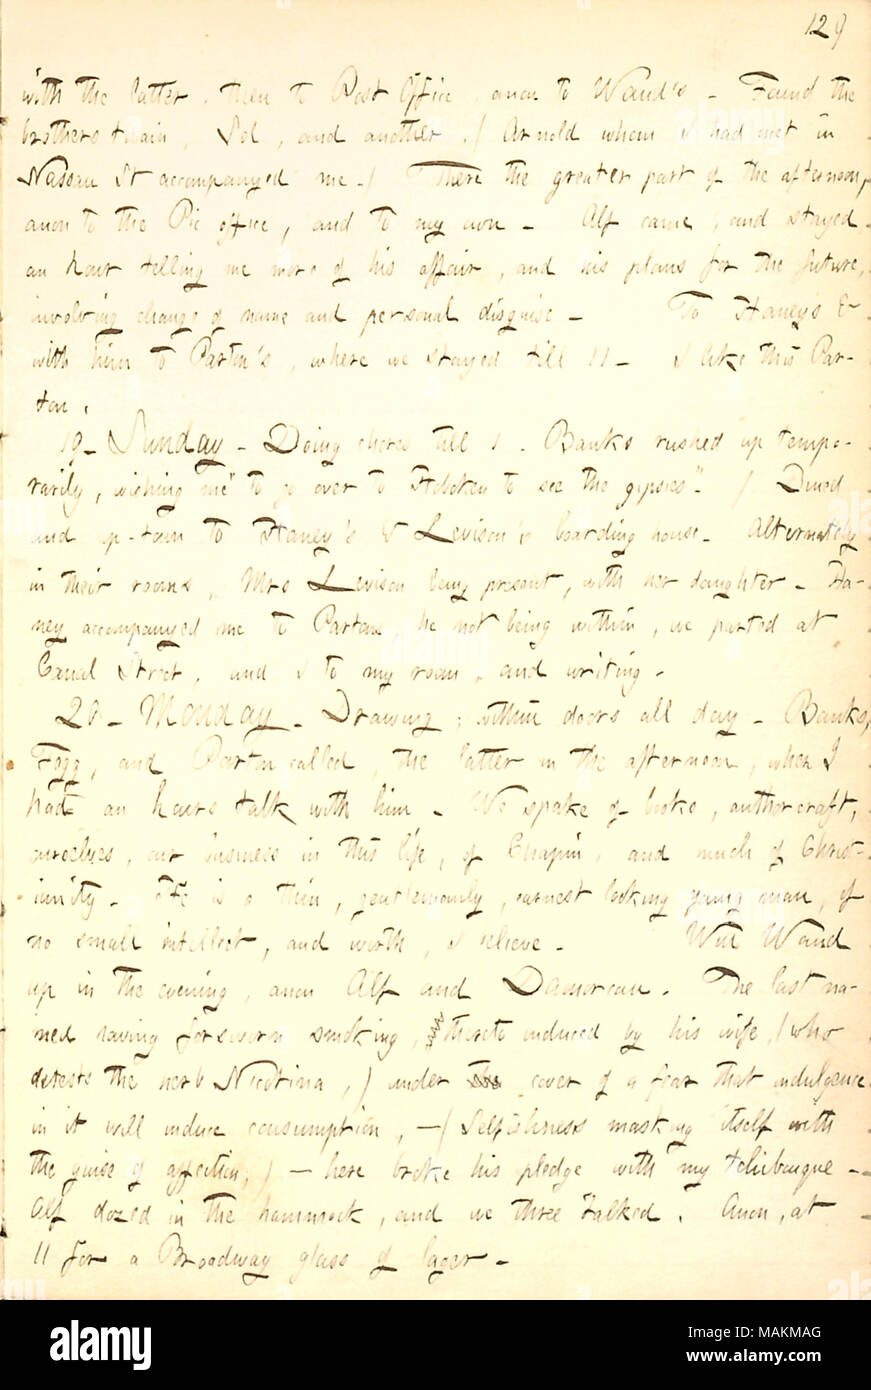 129
with the latter, then to Post Office, anon to Waud's. Found the
brothers twain, Sol, and another. ( Arnold whom I had met in
Nassau St accompanyed me. ) There the greater part of the afternoon,
anon to the Pic office, and to my own. Alf came, and stayed
an hour telling me more of his affair, and his plans for the future,
involving change of name and personal disguise. To Haneys &
with him to Parton's, where we stayed till 11. I like this Par-
ton.
19. Sunday. Doing chores till 1. Banks rushed up tempo-
rarily, wishing me "to go over to Hoboken to see the gipsies". / Dined
and up-town to Haney's & Levison's boarding house. Alternately
in their rooms, Mrs Levison being present, with her daughter. Ha-
ney accompanyed me to Partons, he not being within, we parted at
Canal Street, and I to my room, and writing.
20. Monday. Drawing; within doors all day. Banks,
Fogg, and Parton called, the latter in the afternoon, when I
had an hours talk with him. We spake of books, authorcraft,
ourselves, our business in this life, of Chapin, and much of Christ-
ianity. He is a thin, gentlemanly, earnest looking young man, of
no small intellect, and worth, I believe. Will Waud
up in the evening, anon Alf and Damoreau. The last na-
med having forsworn smoking, thereto induced by his wife, ( who
detests the herb Nicotina, ) under the cover of a fear that indulgence
in it will induce consumption, — ( Selfishness masking itself with
the guise of affection; ) — here broke his pledge with my tchibouque.
Alf dozed in the hammock, and we three talked. Anon, at
11 for a Broadway glass of lager.
alamy
Image ID: MAKMAG
www.alamy.com